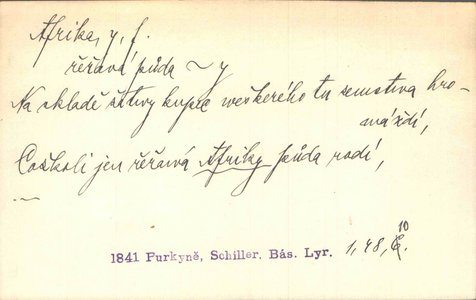 Afrika, y, f.
řeřavá půda ~ y
Na skladě kupce weškerého tu zemstwa hro-
máždí,
Coškoli jen řeřawá Afriky půda rodí,
—
1841 Purkyně, Schiller. Bás. Lyr. 1,48, 10.